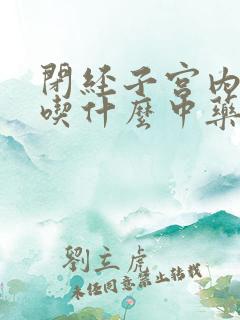 閉經子宮内
喫什麼中藥
劉立虎
未经同意禁止转载